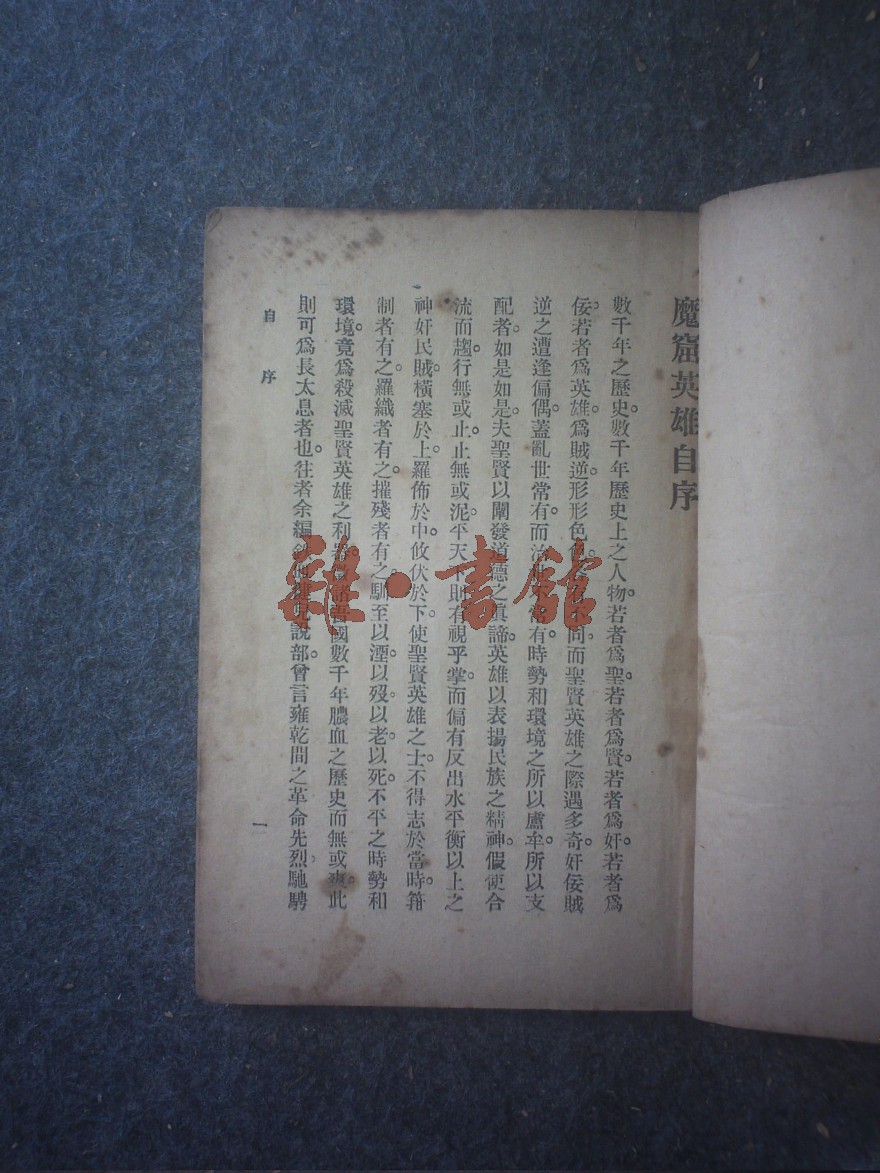 魔窟英雄自序
數千年之歷史。數千年歷史上之人物。若者爲聖。若者爲賢。若者爲奸。若者爲
佞。若者爲英雄。爲賊逆。形形色色。不同。而聖賢英雄之際遇多奇。奸佞賊
逆之遭逢偏偶。蓋亂世常有。而治世不常有。時勢和環境之所以盧牟。所以支
配者。如是如是。夫聖賢以闡發道德之眞諦。英雄以表揚民族之精神。假使合
流而趨。行無或止。止無或泥。平天下則有視乎掌。而偏有反出水平衡以上之
神奸民賊。橫塞於上。羅佈於中。攸伏於下。使聖賢英雄之士。不得志於當時。箝
制者有之。羅織者有之。摧殘者有之。馴至以湮。以歿。以老。以死。不平之時勢和
環境。竟爲殺滅聖賢英雄之利器。國數千年膿血之歷史而無或爽。此
則可爲長太息者也。往者余編說部。曾言雍乾間之革命先烈。馳騁
自序
一
雜·書館